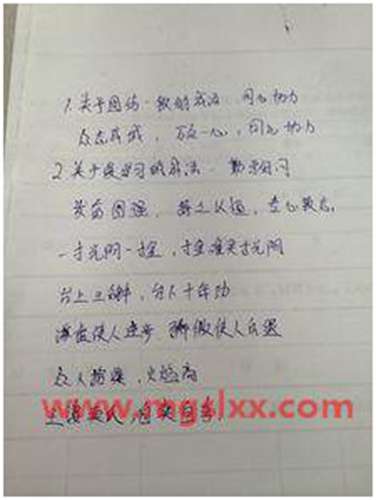 1.关于团结一致的成语 同心协力
众志成城,万众一心,同心协力
2.关于爱学习的成语 勤学好问
发奋图强,持之以恒,专心致志
一寸光阴一寸金,寸金难买寸光阴
台上三分钟,台下十年功
谦虚使人进步 骄傲使人落后
众人拾柴,火焰高
www.mgslxx.com